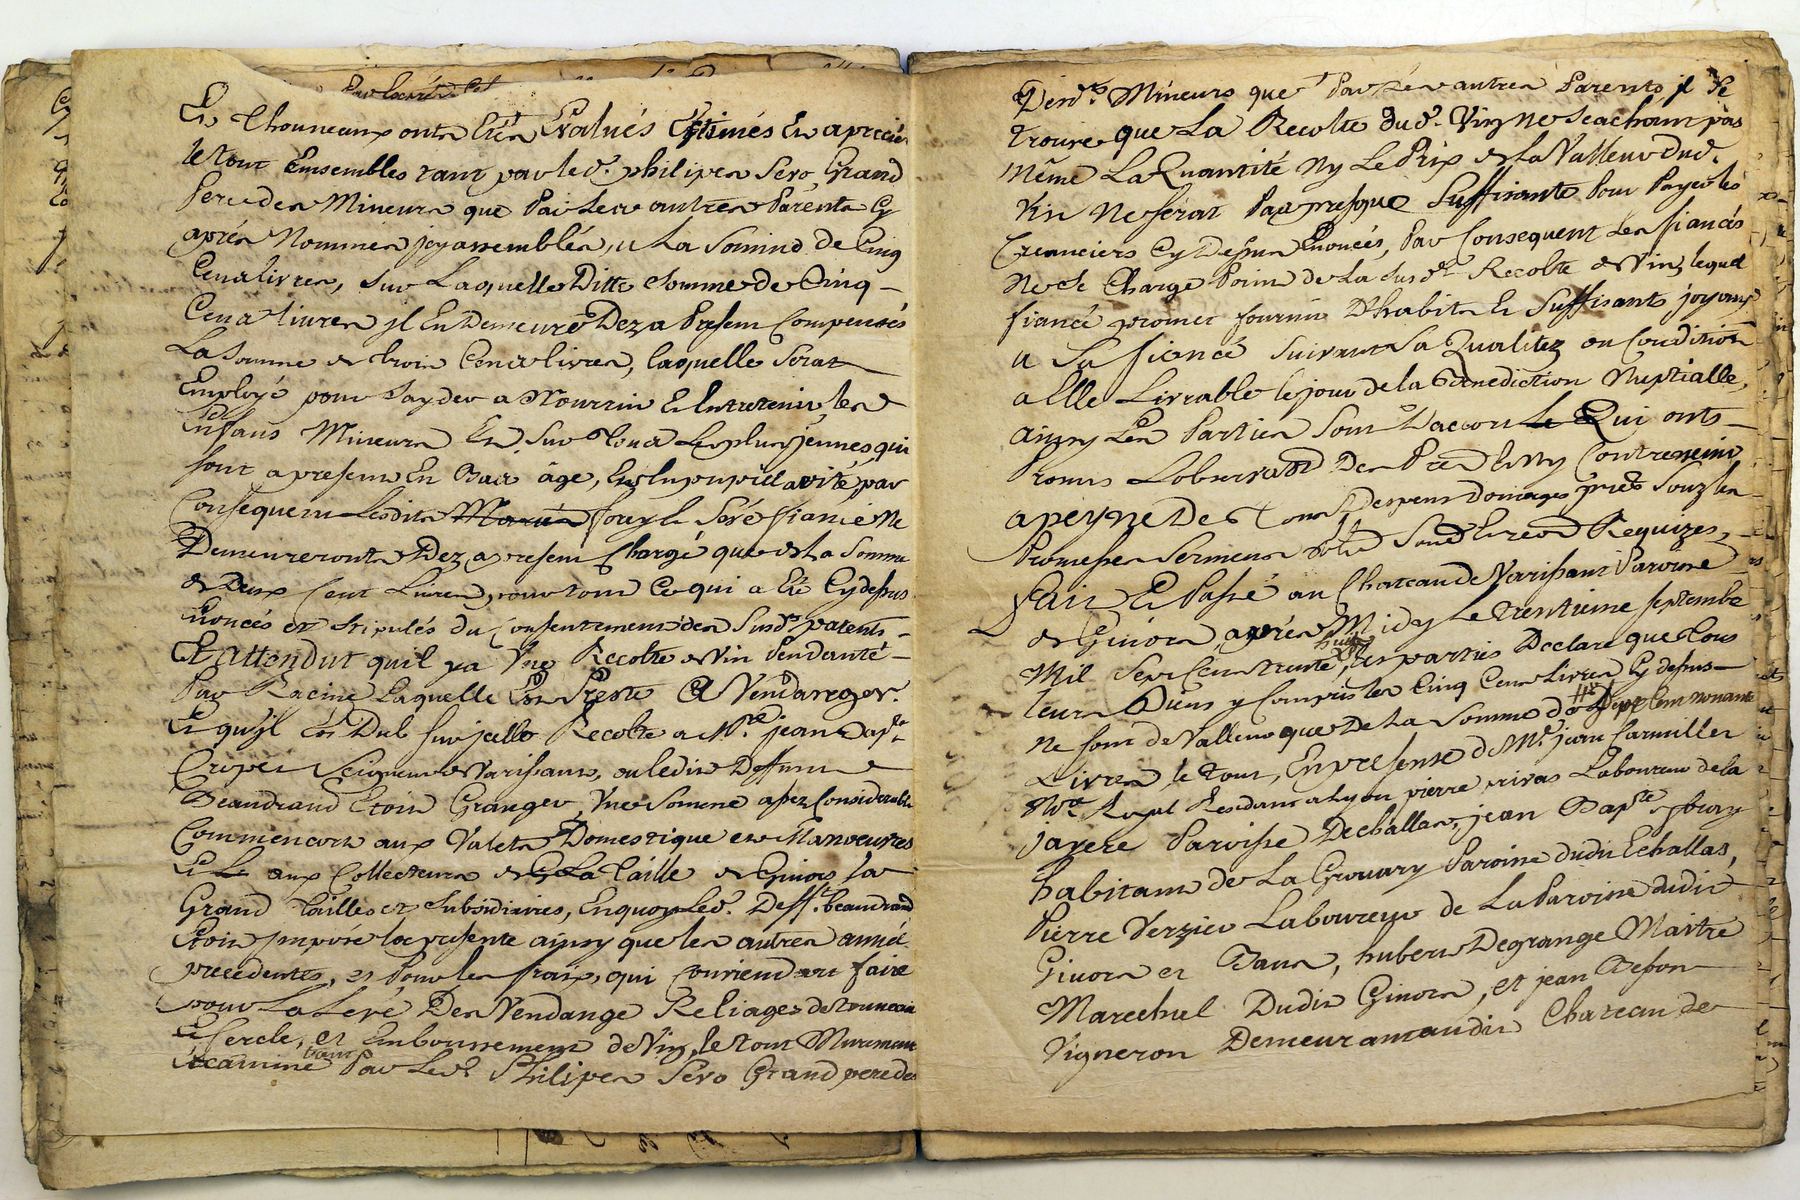 Et Thouneaux onts Etés Evalués Estimés Et apreciés
le tout Emsembles tant par led. philipes Sero, Grand
Pere des Mineurs que Par Les autres Parents Cy
aprés Nommés joy assemblés, a La Somme de Cinq
Cens livres, sur Laquelle Ditte Somme de Cinq
Cens livres jl En Demeure Dez a Presem Compensés
La Somme de trois Cens livres, laquelle Serat
Employé pour Sayder a Nourrir Et Entretenir les
Enfans Mineurs Et sur tous Les plus jeunnes, qui
sont a presem En Bas âge, En la pupillarité, par
Consequem Lesdits fiancé Ne
Demeureronts Dez a presem Chargé que de La Somme
de Deux Cent Livres, pour tout Ce qui a Eté Cydessus
Enoncés et stipulés du Consentement des Susds. parents
Et attendut quil ya Vne Recolte de Vin Pendante
Par Racine Laquelle Est Preste A Vendanger
Et quil Est Dub sur jcelle Recolte a Mre. jean Bapte.
Seigneur de Varissant, ou ledit Deffunt
Beaudrand Etoit Granger, Vne Somme assez Considerable
Commencons aux Valets Domestique et Manoeuvres
Et aux Collecteurs de La Taille de Givors sa
Grand Tailles et Subsidiaires, En quoy Led. Defft. beaudrand
Etoit jmposé la presente ainsy que les autres année
precedentes, et Pour les fraix, qui Conviendront faire
pour La Levé Des Vendange Reliages de touneaux
Et Cercle, et Embourrement de Vin, le tout Murement
Examiné tant Par Led. Philipes Sero Grand pere des
Desds. Mineurs que Par Les autres Parents jl Se
trouve que La Recolte dud. Vin Ne Scachant pas
même La Quantité Ny Le Prix de La Valleur dud.
Vin Ne serat Pas presque Suffisante Pour Payer les
Creanciers Cy Dessus Enoncés, Par Consequent Les fiancés
Ne Se Charge Poinr de La susde. Recolte de Vin, lequel
fiancé promet fournir D'habits Et Suffisants joyaux
a Sa fiancé suivant Sa Qualitez ou Condition
alle Livrable le jour de la Benediction Nuptialle,
ainsy Les Parties Sont D'accort Qui onts
Promis Lobservaôn Des Preds. Et Ny Contrevenir
a peyne De tous Despens Domages jnterds. Souz les
Promesses Sermens
Fait Et Passé au Chateau de Varissant Paroisse
de Givors, aprés Midy Le trentieme septembe
Mil Sept Cens trente huit, Les parties Declare que tous
leurs Biens y Compris les Cinq Cens Livres Cy dessus
Ne sont de Valleur que De La Somme de Sept Cens nonante
Livres le tout, En presense de Me. jean
Nore. Royal Residant a Lyon pierre rivas Laboureur de la
Paroisse Dechallas, jean Bapte.
habitant de La Paroisse dudit Echallas,
Pierre Verzier Laboureur de La Paroisse dudit
Givors et Bans, hubert Degrange Maitre
Marechal Dudit Givors, et jean
Vigneron Demeurant audit Chateau de